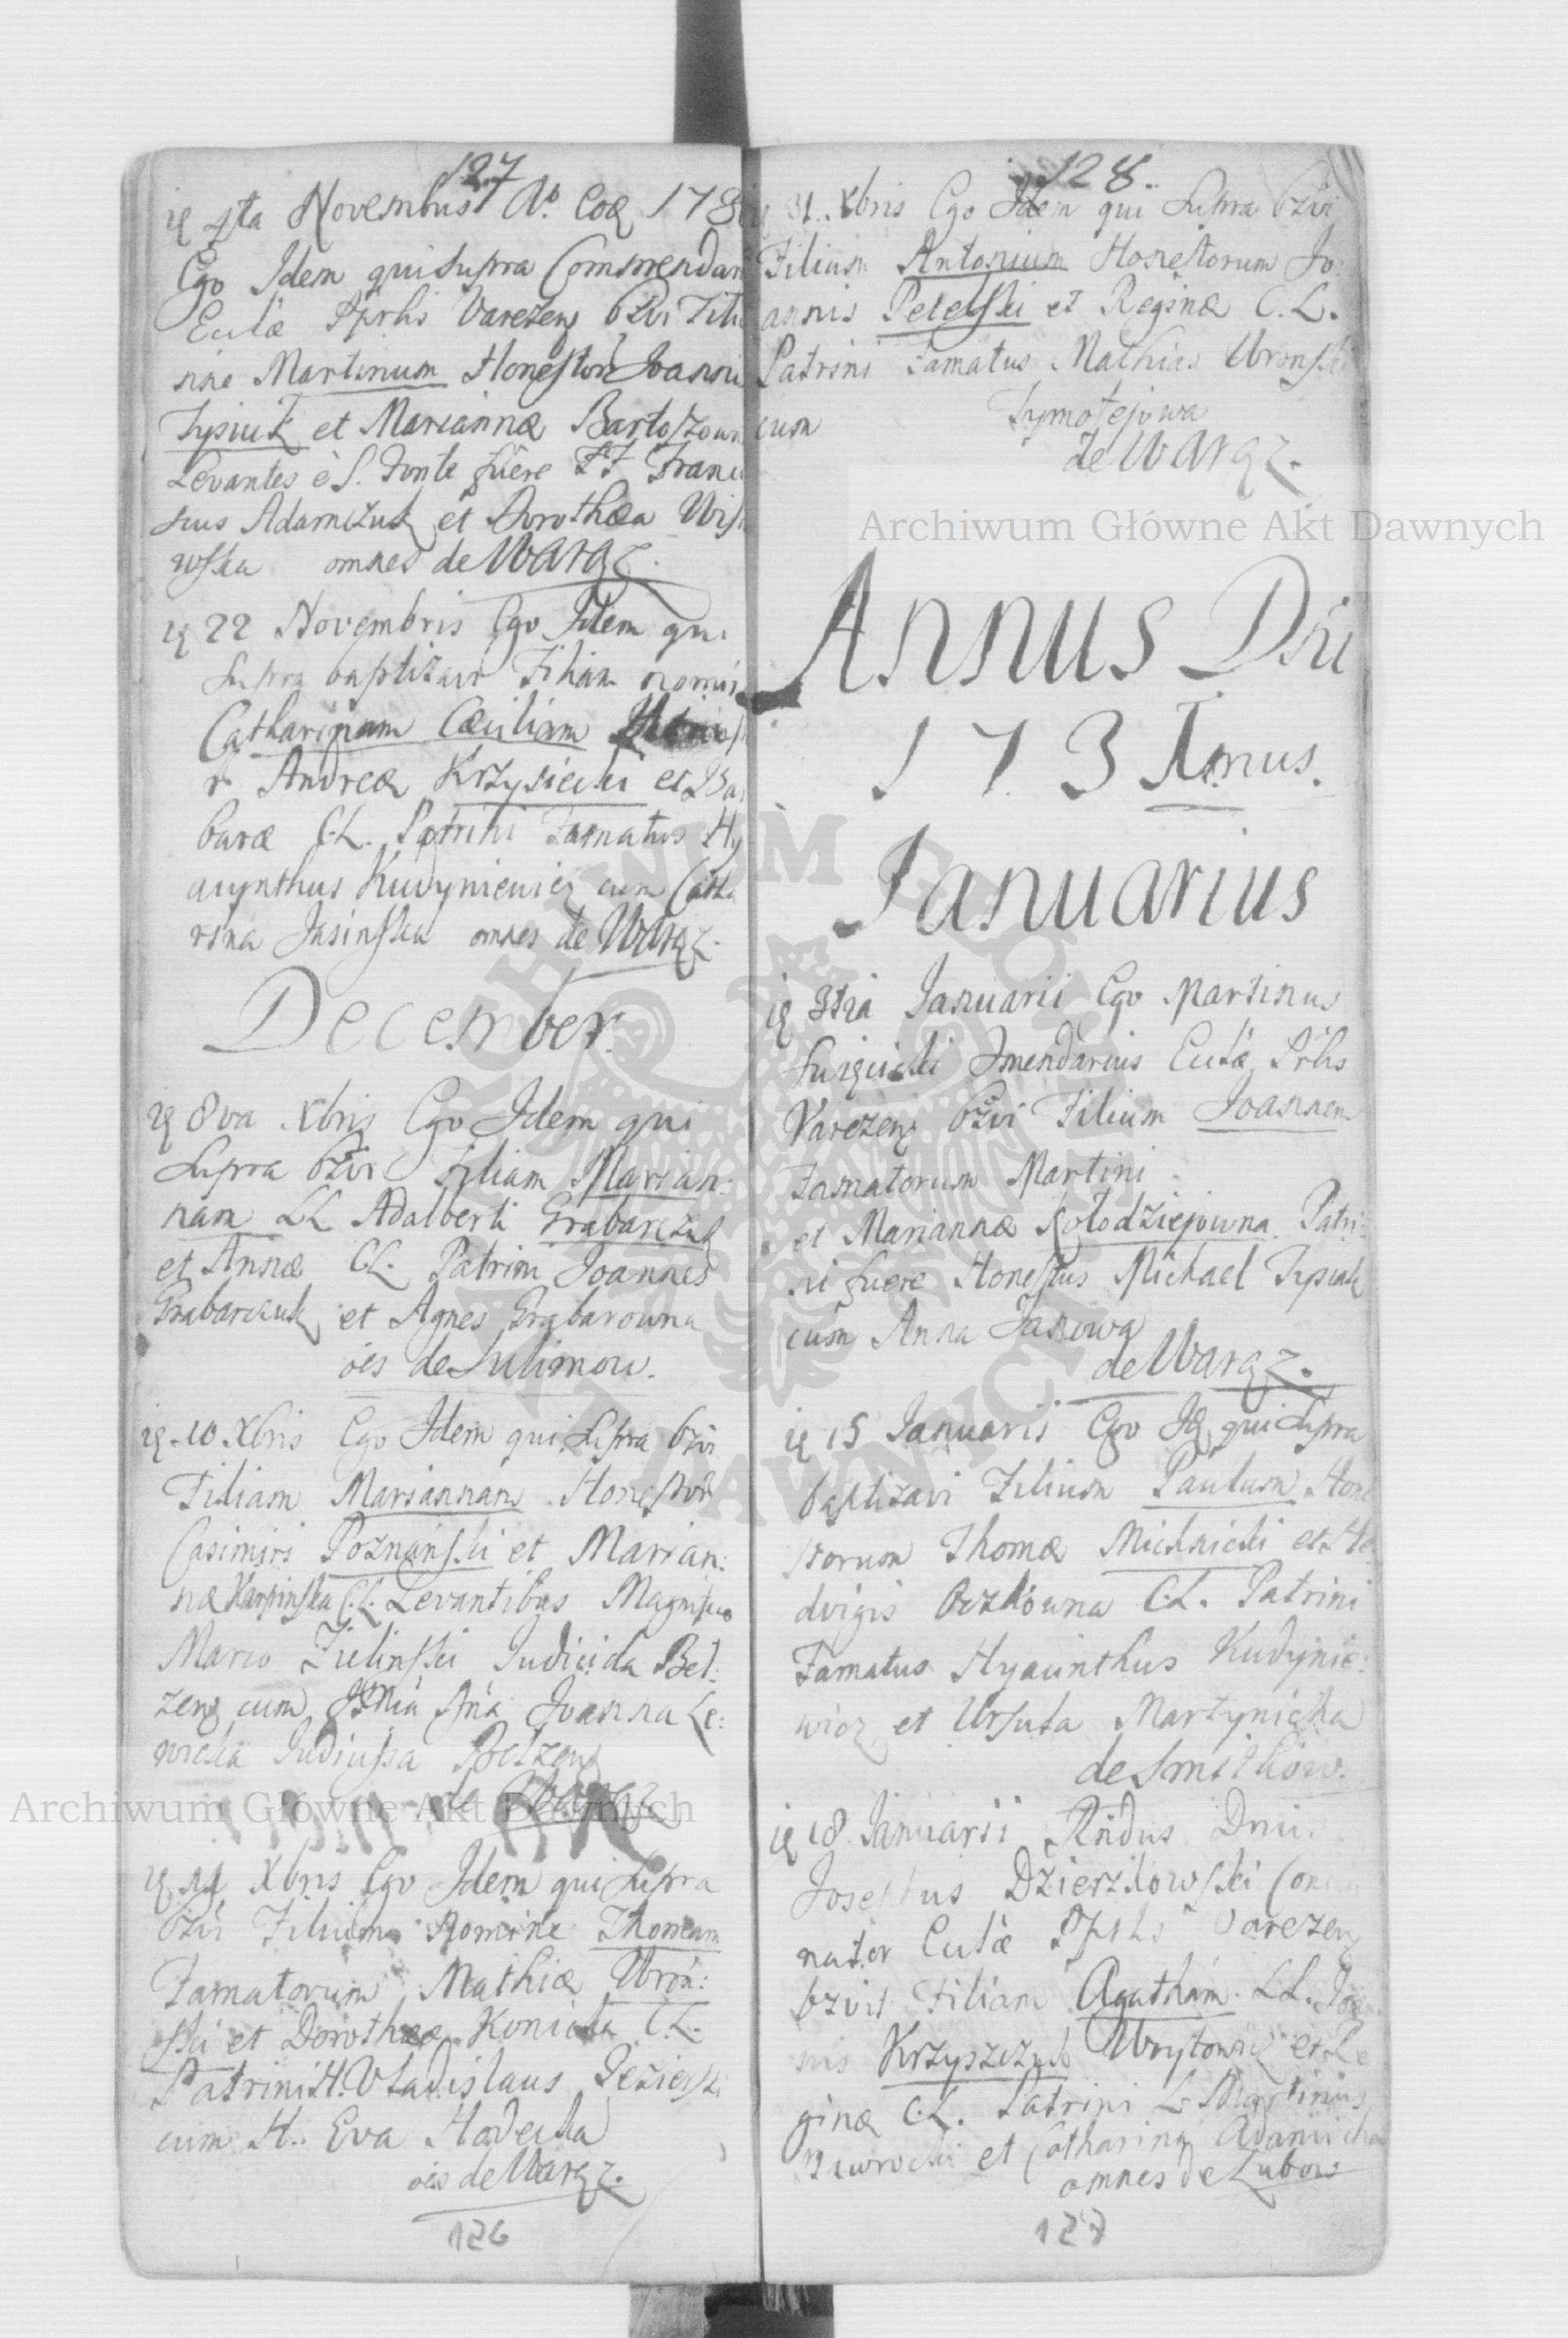 127
4ta Novembris Ao Eoe 173
Ego Idem qui supra Commendar
Eccłae Pprlis Varezen bzvi Fili
nne Martinum Honestor Joannis
Tysiuk et Mariannæ Bartoszown
Levantes è S. Fonte fuere FF Franci
scus Adamczuk et Dorothea Wisn
wska omnes de Waręz.
22 Novembris Ego Idem qui
supra baptizavi Filiam nomin
Catharinam Cæciliam
Andreæ Krzysiecki et Bar
baræ C.L. Patrini Famatus Hy
acynthus Kudyniewicz cum Catha
rina Jasinska omnes de Waręz.
December.
8va Xbris Ego Idem qui
supra bzvi Filiam Marian:
nam LL Adalberti Grabarczuk
et Annæ CL. Patrini Joannes
Grabarczuk et Agnes Grabarowna
oẽs de Sulimow.
10 Xbris Ego Idem qui supra bzvi
Filiam Mariannam Honestor
Casimiri Poznanski et Marian:
næ Karpinska C.L. Levantibus Magnifico
Marco Zielinski Judicida Bel:
zen cum Joanna Le:
wicka Judicissa Belzen
de Waręz
11 Xbris Ego Idem qui supra
bzvi Filium Nomine Thomam
Famatorum Mathiæ Wron:
ski et Dorotheæ Konicka C.L.
Patrini H. Vladislaus Jezierski
cum H. Eva Hodecka
oẽs de Waręz.
126
128.
31. Xbris Ego Idem qui supra bzvi
Filium Antonium Honestorum Jo:
annis Petelski et Reginæ C.L.
Patrini Famatus Mathias Wronski
cum Tymotejowa
de Waręz.
Annus Dni
173 Imus.
Januarius
3tia Januarii Ego Martinus
Omendarius Eccłæ Prlis
Varezen bzvi Filium Joannem
Famatorum Martini
et Mariannæ Kołodziejowna. Patri:
ni fuere Honestus Michael Tysiuk
cum Anna Janowa
de Waręz.
15 Januarii Ego Id qui supra
baptizavi Filium Paulum Hone
storum Thomæ Michnicki et He
dvigis C.L. Patrini
Famatus Hyacinthus Kudynie:
wicz et Ursula Martynicha
de Smitkow.
18 Januarii Rndus Dnus
Josephus Dzierzkowski
nator Eccłæ Pprlis Varezen
bzvit Filiam Agatham LL. Joan
nis Krzyszczuk Woytowicz et Re
ginæ C.L. Patrini L Martinus
et Catharina Adamicha
omnes de Lubow
127
Archiwum Główne Akt Dawnych
Archiwum Główne Akt Dawnych
ARCHIWUM GŁÓWNE AKT DAWNYCH